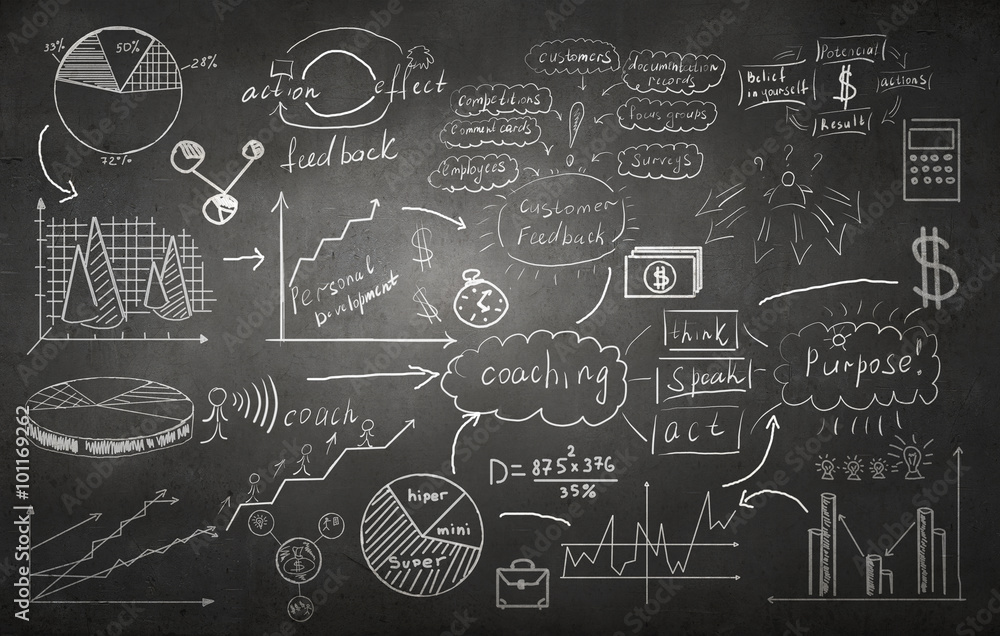 33%
50%
28%
72%
action
effect
feedback
customers
documentation
records
competitions
focus groups
comment cards
employees
surveys
Customer
Feedback
Potencial
Belief
in yourself
$
actions
Result
? ? ?
Personal
Development
$
$
$
$
coaching
think
speak
act
Purpose!
coach
D = 875² × 376
35%
hiper
mini
Super
$
Adobe Stock | #101169262